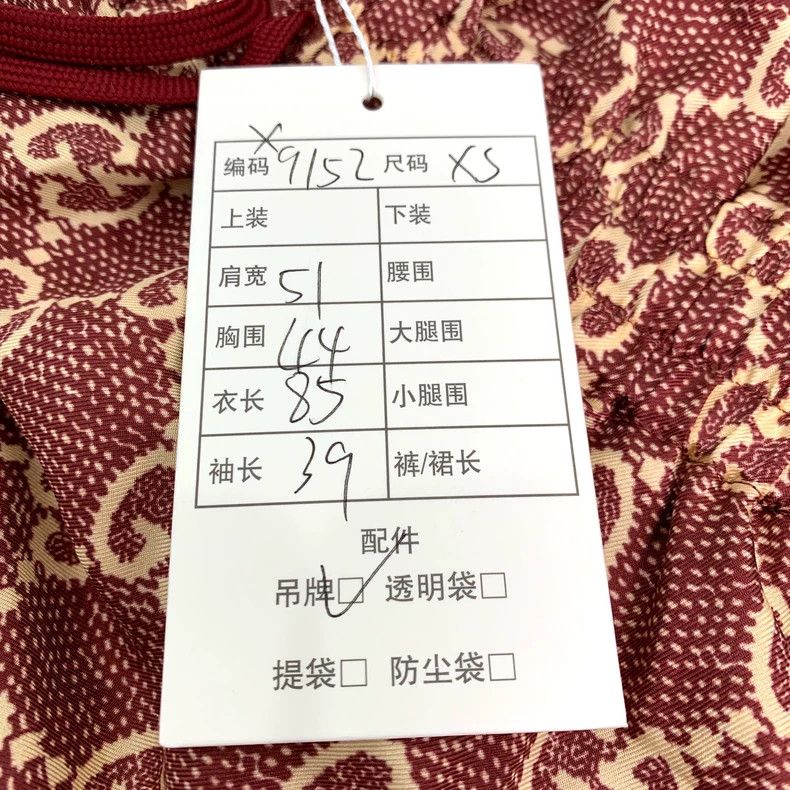 X
编码 9152 尺码 XS
上装 下装
肩宽 51 腰围
胸围 44 大腿围
衣长 85 小腿围
袖长 39 裤/裙长
配件
吊牌☑ 透明袋□
提袋□ 防尘袋□